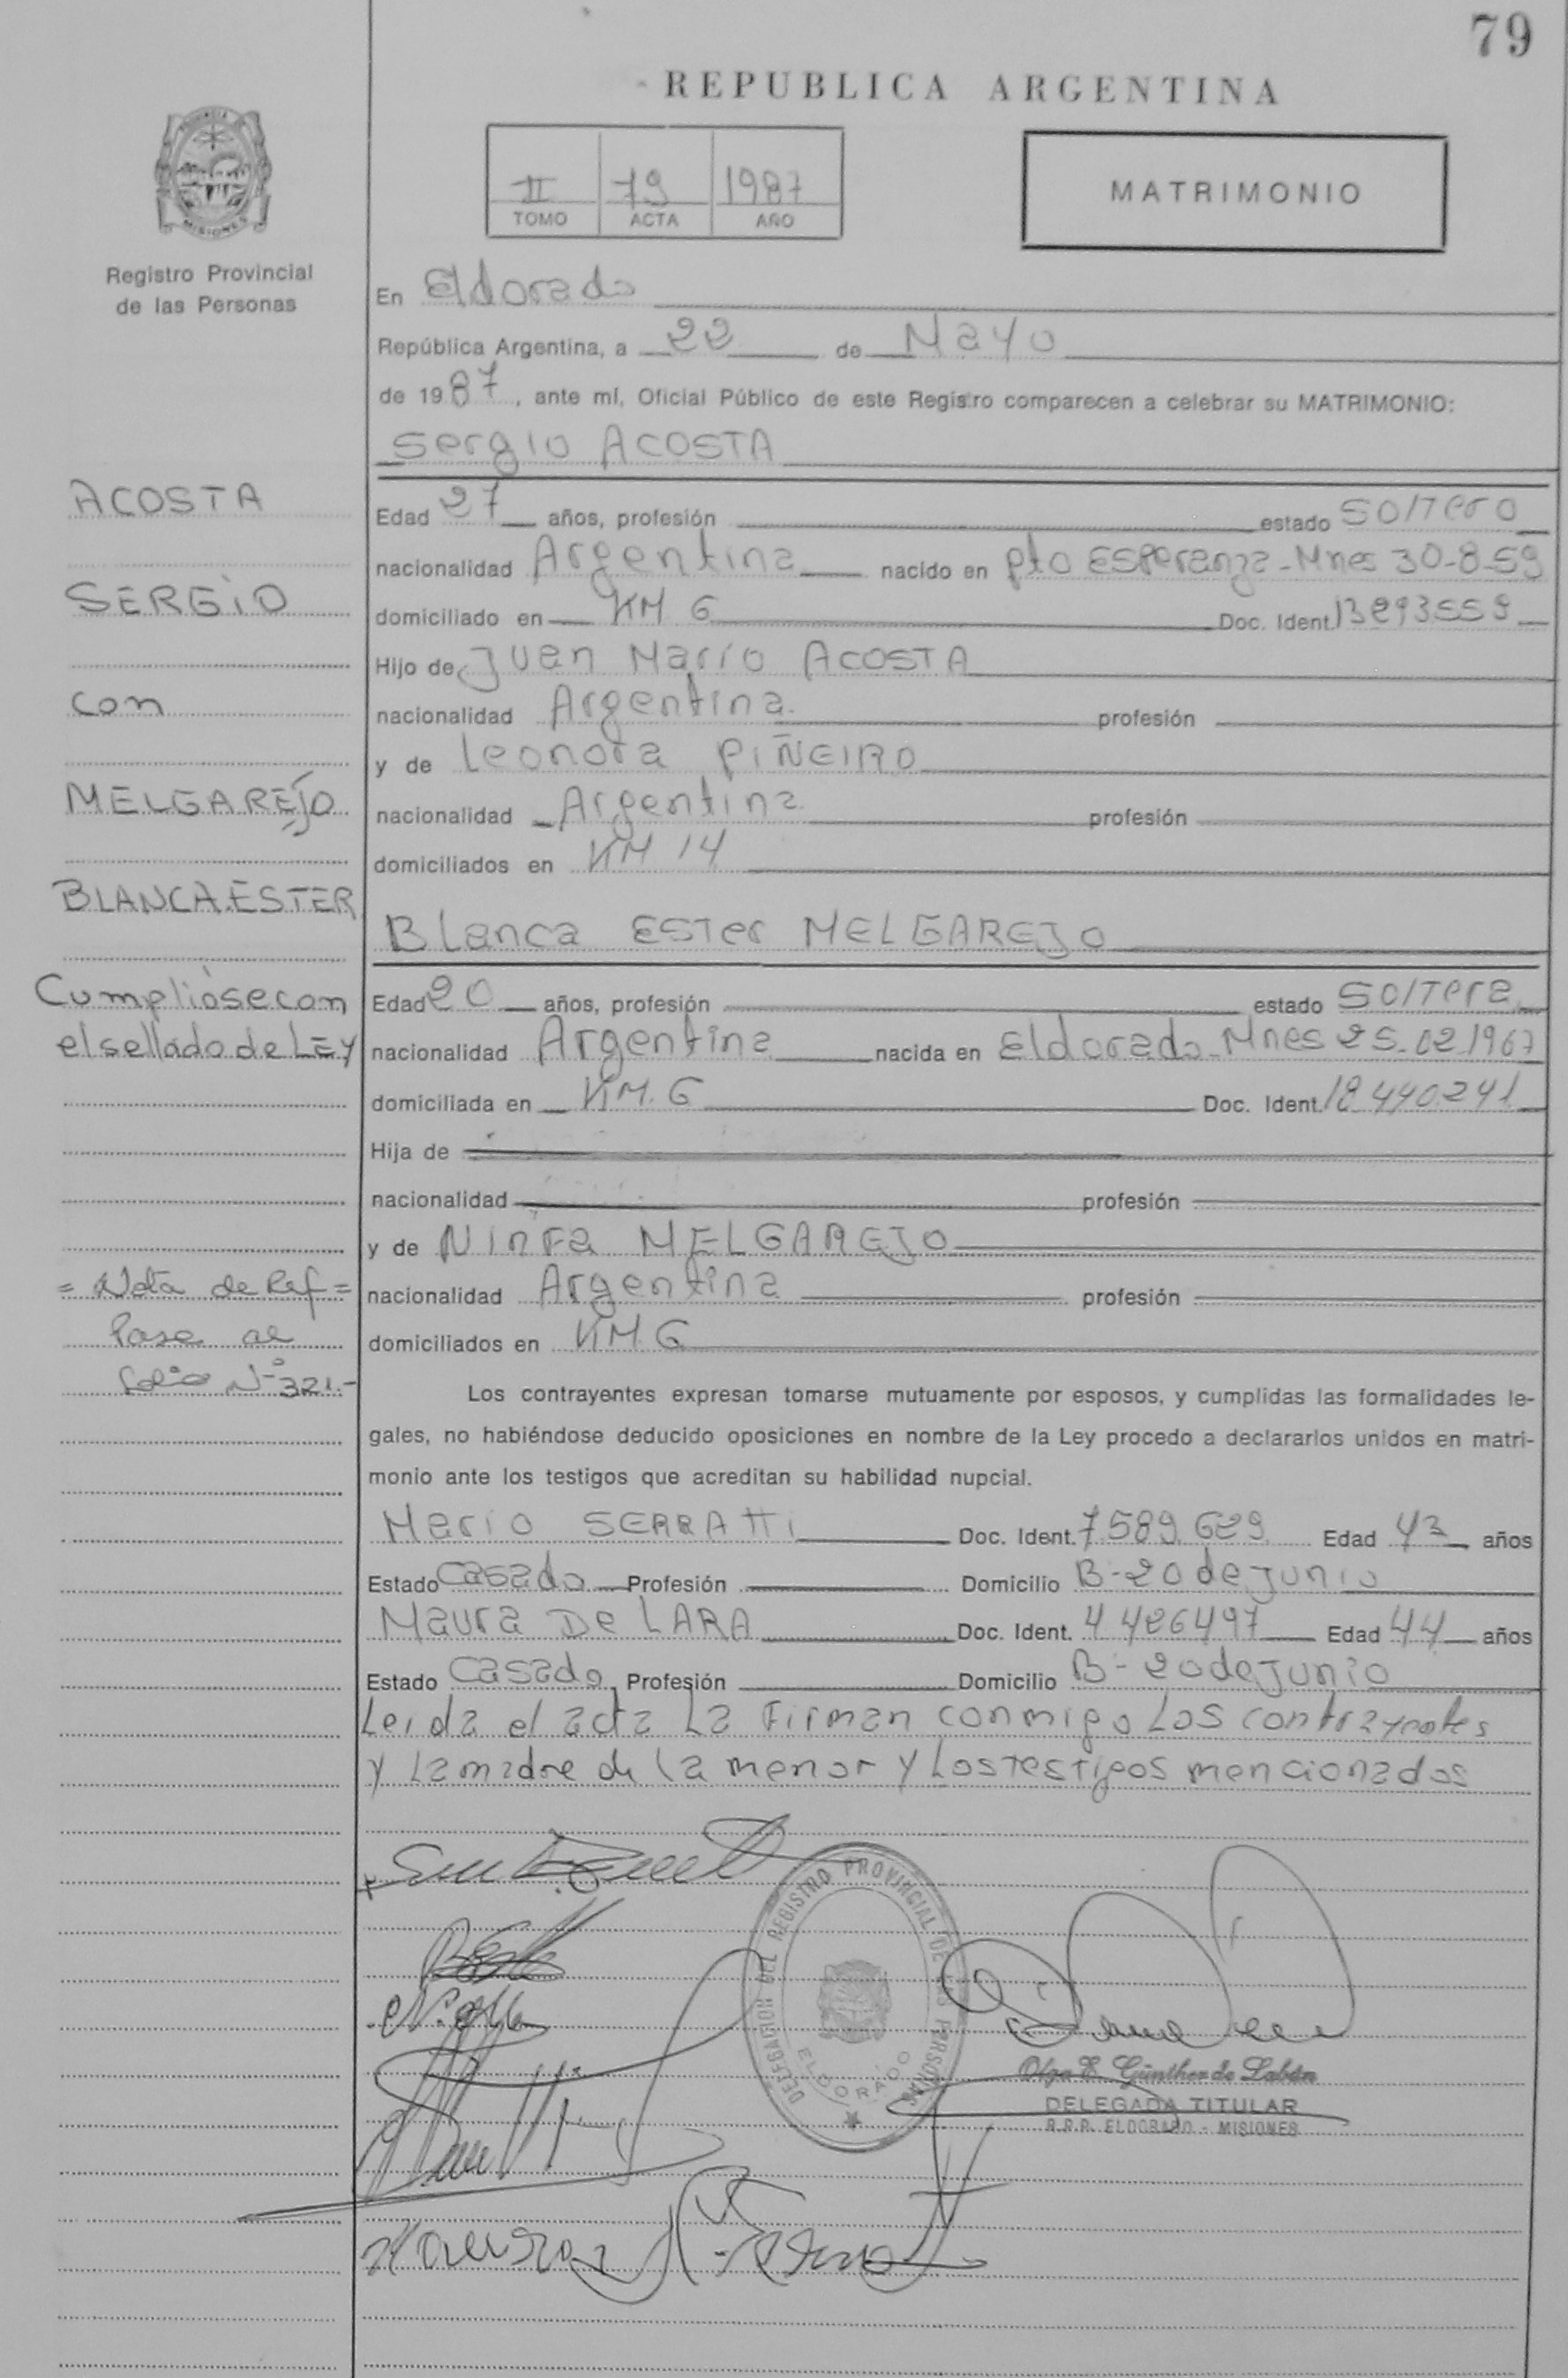 79
REPUBLICA ARGENTINA
MISIONES
Registro Provincial
de las Personas
II 79 1987
TOMO ACTA AÑO
MATRIMONIO
En Eldorado
República Argentina, a 22 de Mayo
de 1987, ante mí, Oficial Público de este Registro comparecen a celebrar su MATRIMONIO:
Sergio ACOSTA
ACOSTA
Edad 27 años, profesión estado Soltero
nacionalidad Argentina nacido en Pto Esperanza - Mnes 30-8-59
SERGIO
domiciliado en KM 6 Doc. Ident. 13293559
Hijo de Juan Mario ACOSTA
con
nacionalidad Argentina profesión
y de Leonora PIÑEIRO
MELGAREJO
nacionalidad Argentina profesión
domiciliados en KM 14
BLANCA ESTER
Blanca Ester MELGAREJO
Cumplióse con
Edad 20 años, profesión estado Soltera
el sellado de LEY
nacionalidad Argentina nacida en Eldorado - Mnes 25-02-1967
domiciliada en KM. 6 Doc. Ident. 18 440.241
Hija de
nacionalidad profesión
y de Ninfa MELGAREJO
= Nota de Ref =
nacionalidad Argentina profesión
Pase al
domiciliados en KM. 6
folio Nº 321.-
Los contrayentes expresan tomarse mutuamente por esposos, y cumplidas las formalidades le-
gales, no habiéndose deducido oposiciones en nombre de la Ley procedo a declararlos unidos en matri-
monio ante los testigos que acreditan su habilidad nupcial.
Mario SERRATTI Doc. Ident. 7.589.629 Edad 43 años
Estado Casado Profesión Domicilio B-20 de Junio
Maura De LARA Doc. Ident. 4.426497 Edad 44 años
Estado Casado Profesión Domicilio B-20 de Junio
Leida el acta La Firman conmigo Los contrayentes
y La madre de la menor y Los testigos mencionados
DELEGACION DEL REGISTRO PROVINCIAL DE LAS PERSONAS
ELDORADO
Olga E. Günther de Labán
DELEGADA TITULAR
R.P.P. ELDORADO - MISIONES